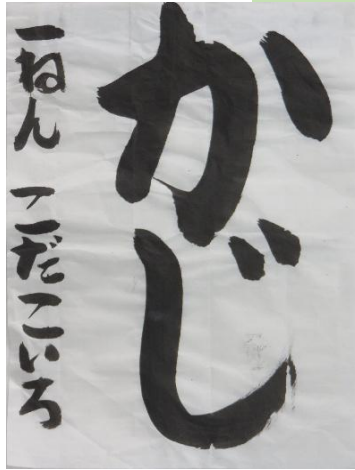 かじ
一ねん こだこいろ